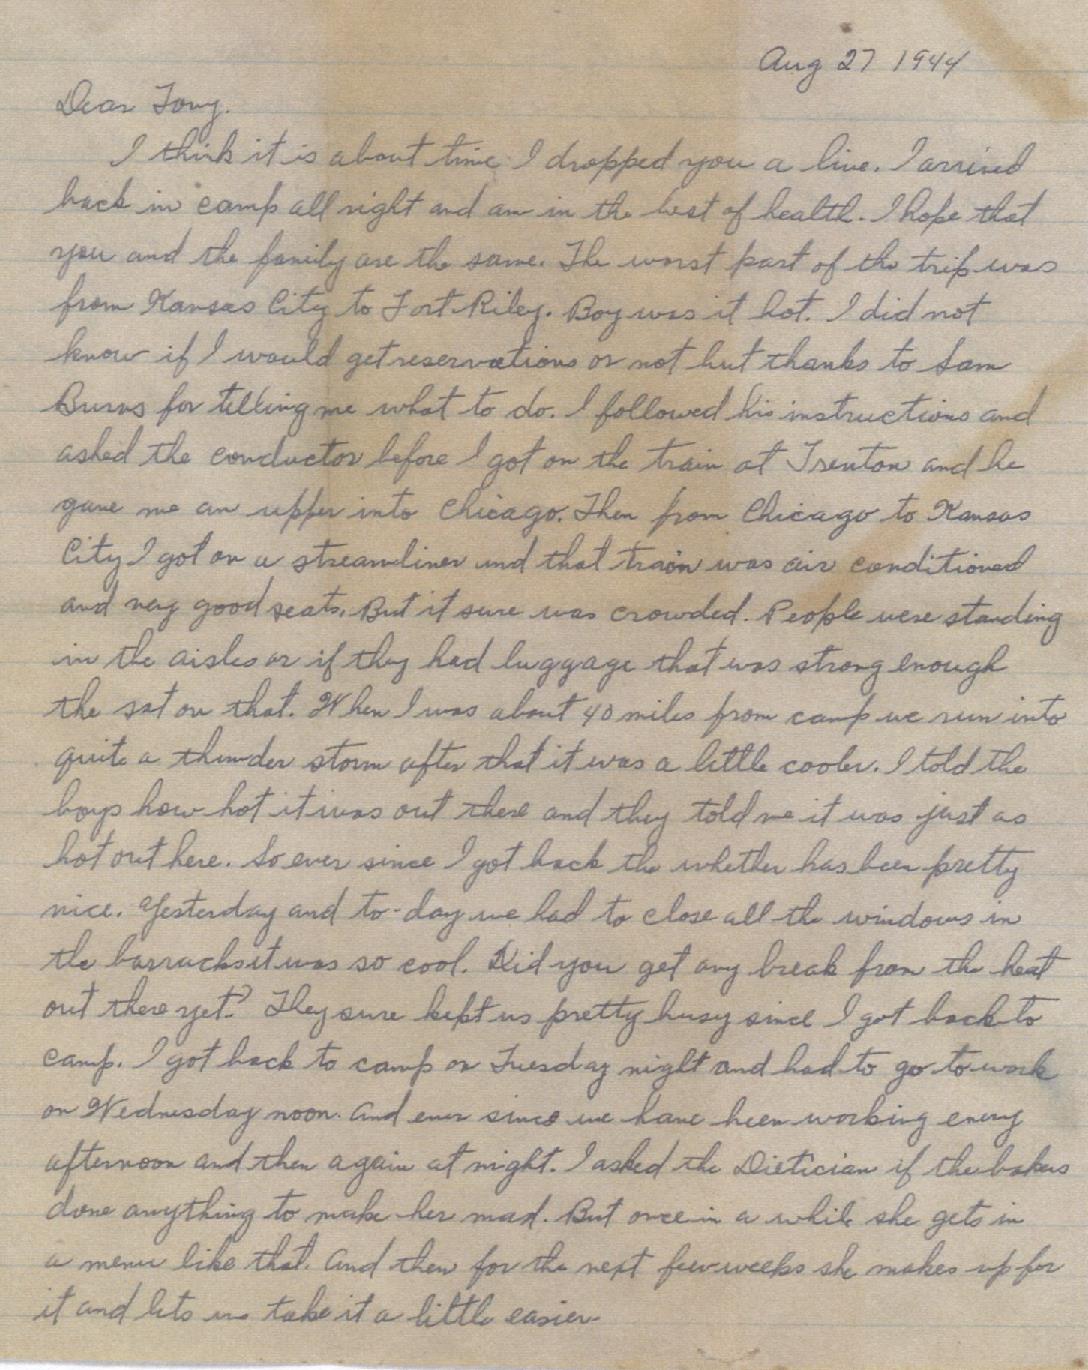 Aug 27 1944
Dear Tony.
I think it is about time I dropped you a line. I arrived
back in camp all right and am in the best of health. I hope that
you and the family are the same. The worst part of the trip was
from Kansas City to Fort Riley. Boy was it hot. I did not
know if I would get reservations or not but thanks to Sam
Burns for telling me what to do. I followed his instructions and
asked the conductor before I got on the train at Trenton and he
gave me an upper into Chicago. Then from Chicago to Kansas
City I got on a streamliner and that train was air conditioned
and very good seats. But it sure was crowded. People were standing
in the aisles or if they had luggage that was strong enough
the sat on that. When I was about 40 miles from camp we run into
quite a thunder storm after that it was a little cooler. I told the
boys how hot it was out there and they told me it was just as
hot out here. So ever since I got back the whether has been pretty
nice. Yesterday and to-day we had to close all the windows in
the barracks it was so cool. Did you get any break from the heat
out there yet? They sure kept us pretty busy since I got back to
camp. I got back to camp on Tuesday night and had to go to work
on Wednesday noon. And ever since we have been working every
afternoon and then again at night. I asked the Dietician if the bakers
done anything to make her mad. But once in a while she gets in
a menu like that. And then for the next few weeks she makes up for
it and lets us take it a little easier.